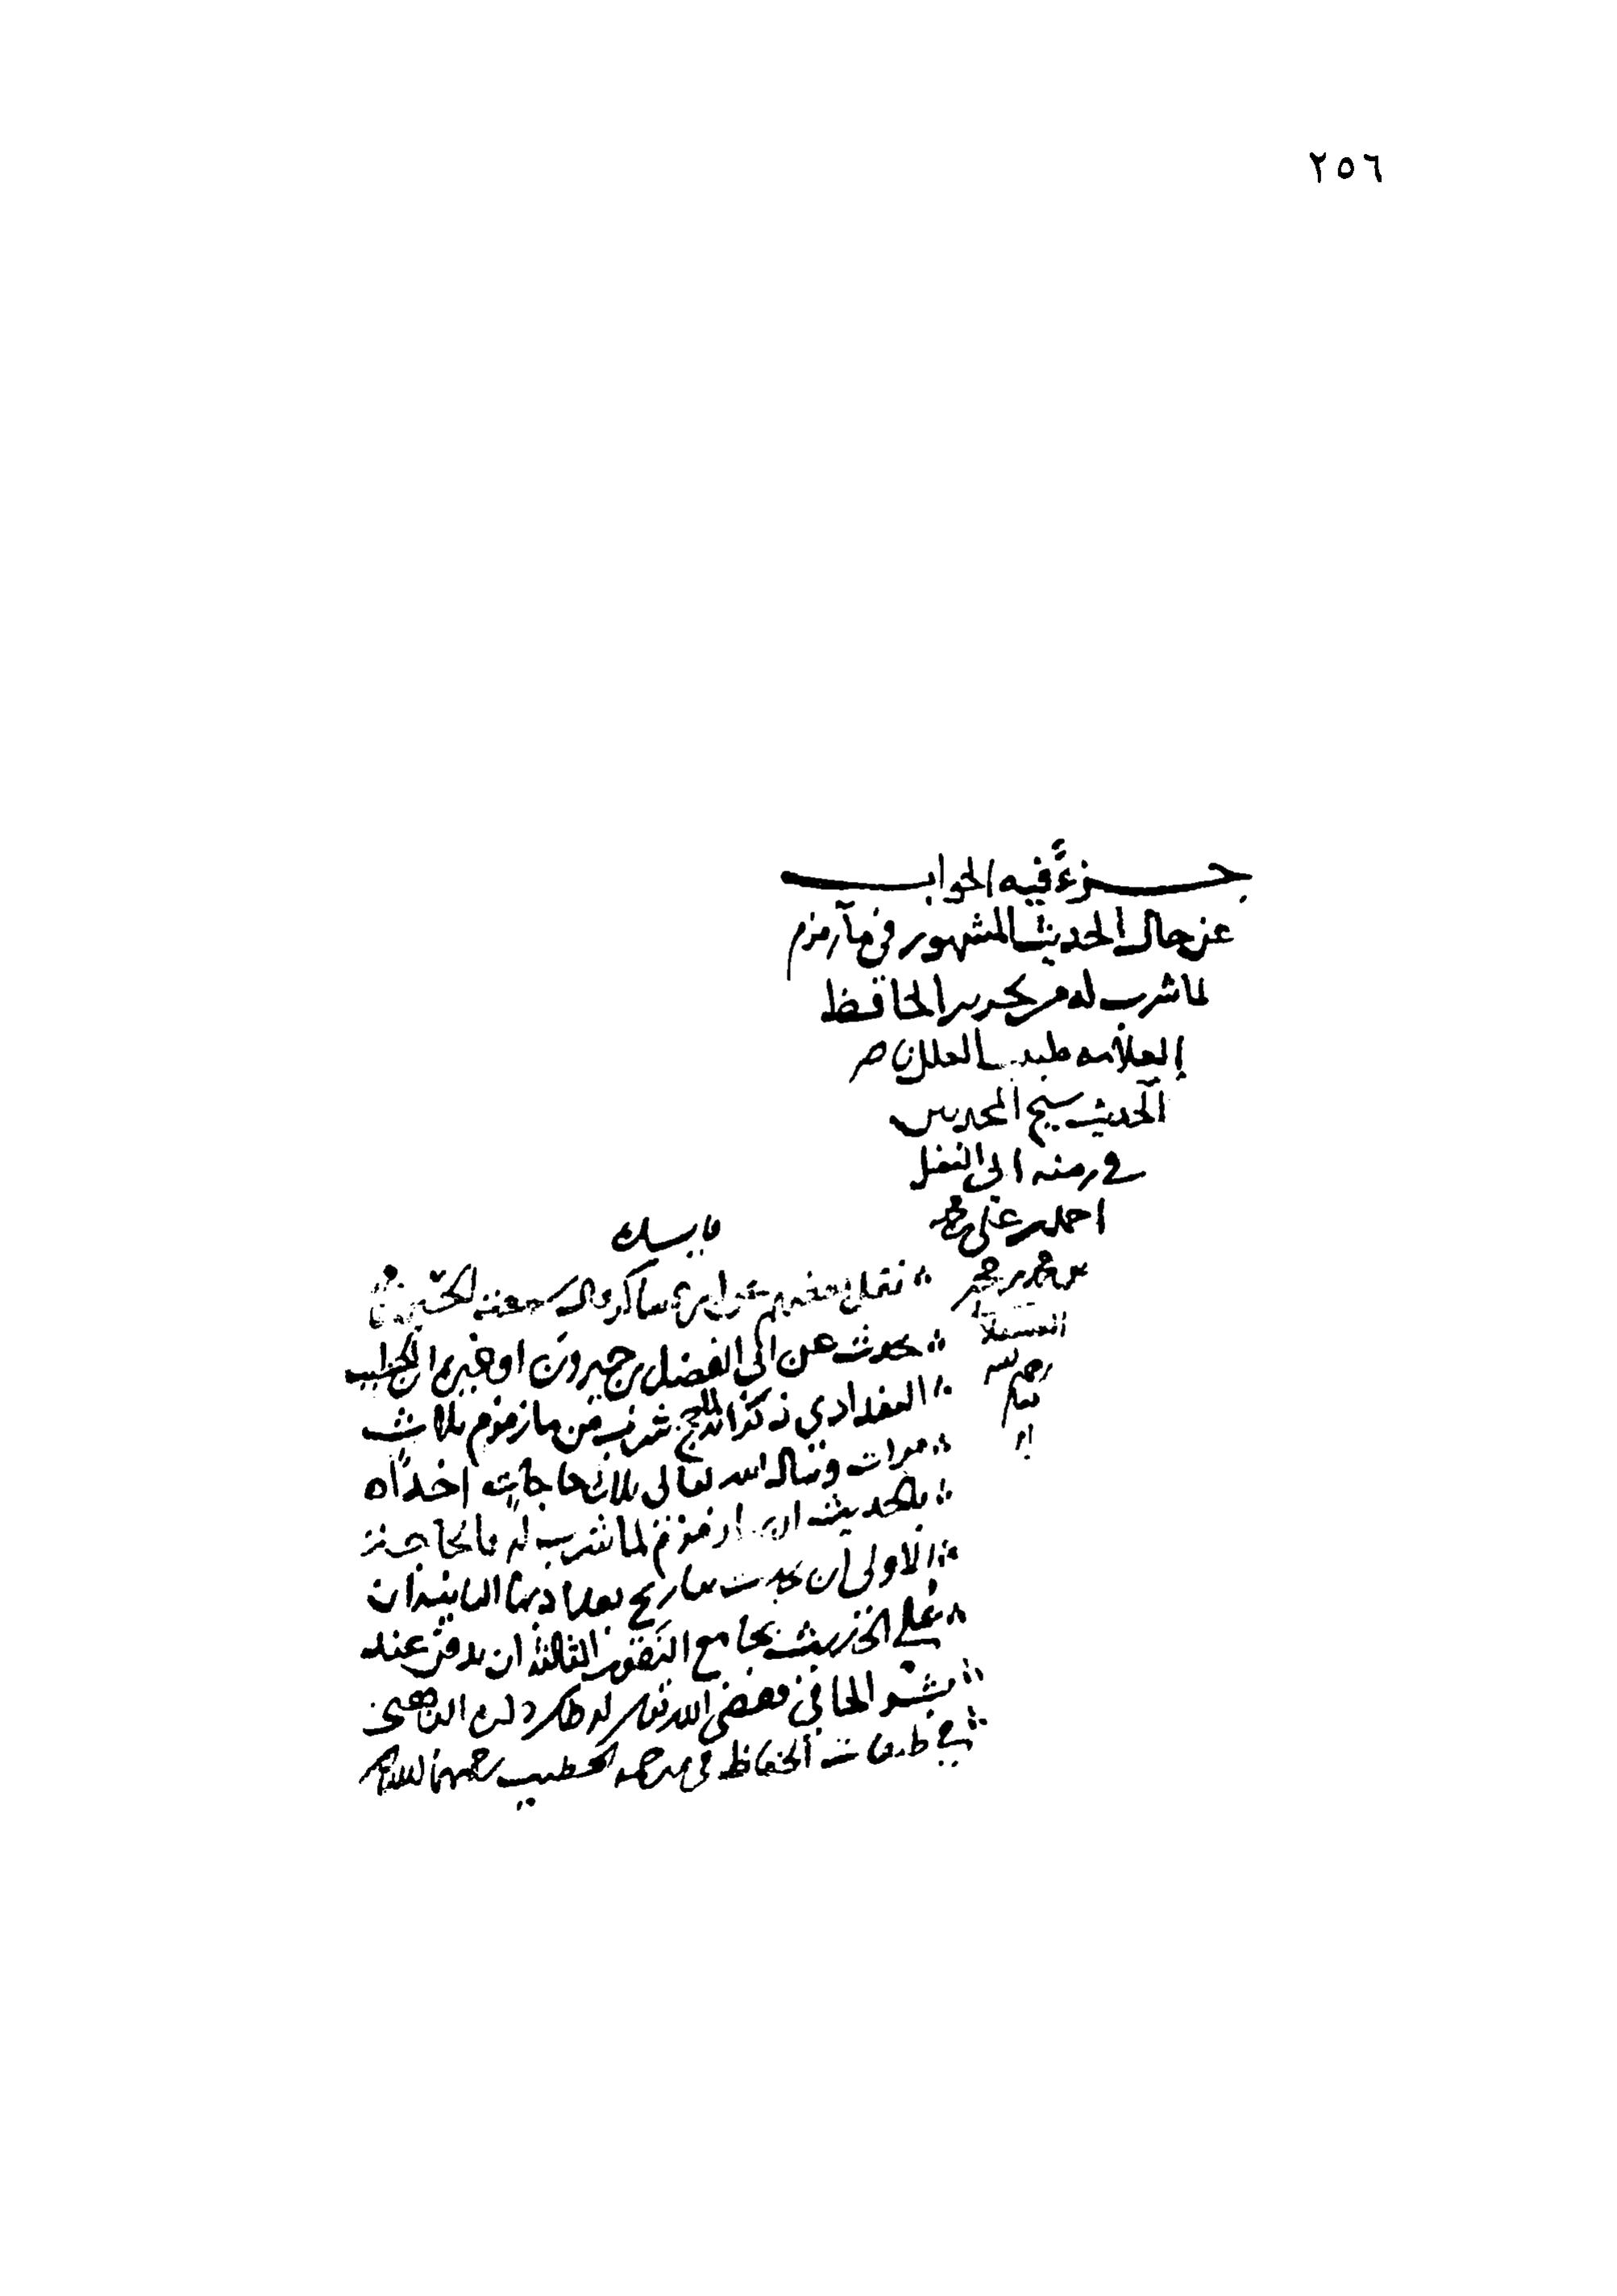 ٢٥٦
جزء فيه الجواب
عن حال الحديث المشهور في ماء زمزم
لما شرب له من تحرير الحافظ
العلامه طبيب العلل ناصر
الحديث شيخ المحدثين
في زمنه ابي الفضل
احمد بن علي بن محمد
بن محمد بن حجر
العسقلاني
رحمه الله
تعالى
فايده
نقل بعضهم عن ابن عساكر قال سمعت الحسين بن محمد
يحدث عن ابي الفضل بن خيرون او غيره ان الخطيب
البغدادي ذكر انه لما حج شرب من ماء زمزم ثلاث
مرات وسال الله تعالى ثلاث حاجات اخذا
بالحديث ماء زمزم لما شرب له فالحاجة
الاولى ان يحدث بتاريخ بغداد بها الثانية ان
يملي الحديث بجامع المنصور الثالثة ان يدفن عند
بشر الحافي فقضى الله تعالى له ذلك
في طبقات الحفاظ في ترجمة الخطيب رحمهما الله تعالى